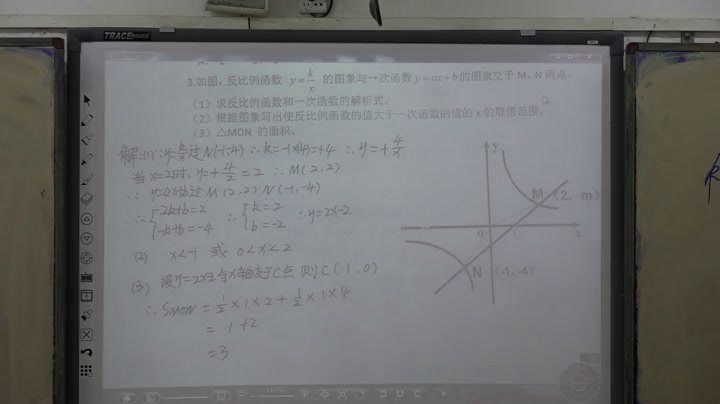 TRACE BOARD
3.如图，反比例函数 y=k/x 的图象与一次函数 y=ax+b 的图象交于 M、N 两点。
（1）求反比例函数和一次函数的解析式。
（2）根据图象写出使反比例函数的值大于一次函数的值的 x 的取值范围。
（3）△MON 的面积。
解:(1)∵y=k/x过N(-1,-4) ∴k=-1×(-4)=+4 ∴y=+4/x
当x=2时, y=+4/2=2 ∴M(2,2)
∵y=ax+b过M(2,2) N(-1,-4)
∴{2k+b=2 -k+b=-4 ∴{k=2 b=-2 ∴y=2x-2
(2) x<-1 或 0<x<2
(3) 设y=2x-2与x轴交于C点 则C(1,0)
∴S MON = 1/2×1×2+1/2×1×4
= 1+2
=3
y
M（2，m）
x
N（-1，-4）